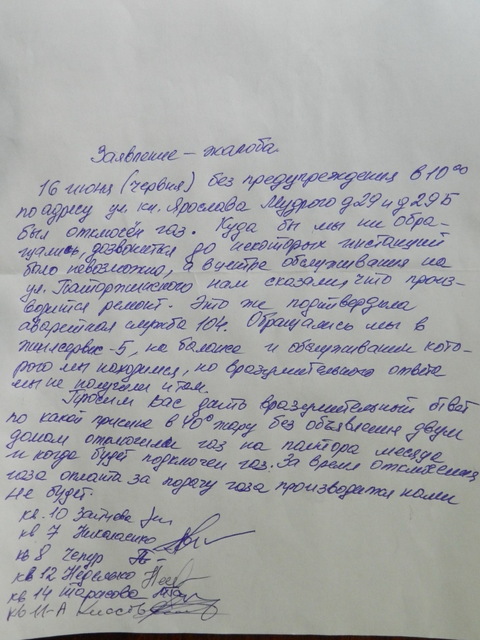 Заявление – жалоба.
16 июня (червня) без предупреждения в 10⁰⁰
по адресу ул. кн. Ярослава Мудрого д29 и д29Б
был отключён газ. Куда бы мы ни обра-
щались, дозвониться до некоторых инстанций
было невозможно, а в центре обслуживания на
ул. Паторжинского нам сказали, что произ-
водится ремонт. Это же подтвердила
аварейная служба 104. Обращались мы в
жилсервис-5, на балансе и обслуживании кото-
рого мы находимся, но вразумительного ответа
мы не получили и там.
Просим Вас дать вразумительный ответ
по какой причине в 40° жару без объявления двум
домам отключили газ на полтора месяца
и когда будет подключен газ. За время отключения
газа оплата за подачу газа производится нами
не будет.
кв. 10 Зайцева
кв 7 Николаенко
кв 8 Чепур
кв 12 Неделько
кв 14 Тарасова
кв 11-А